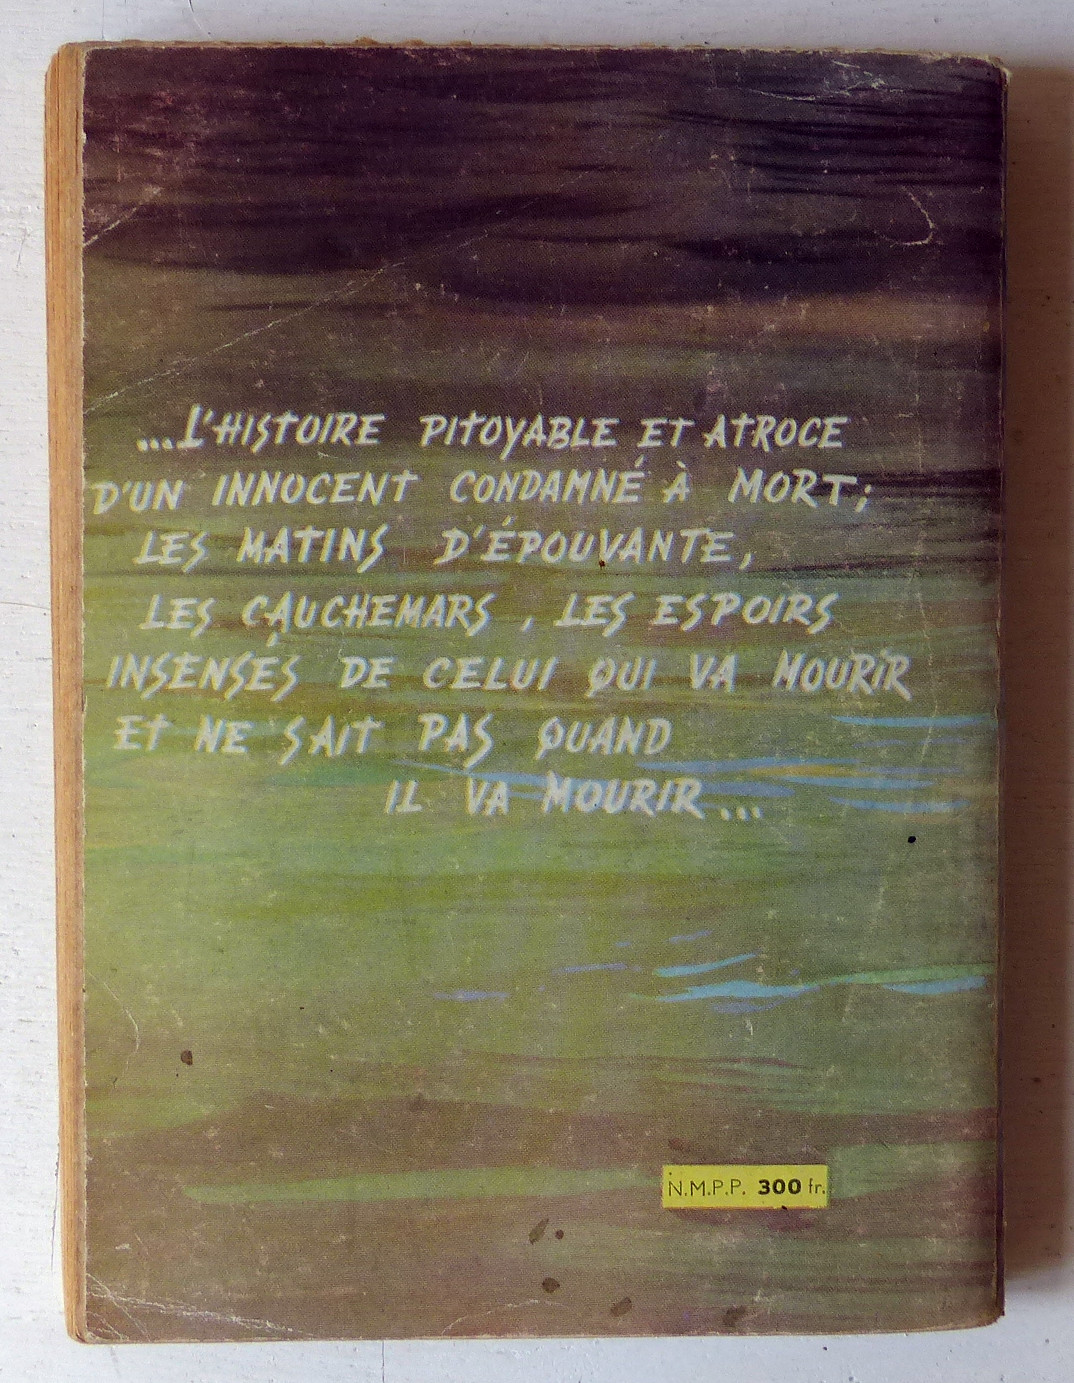 ...L'HISTOIRE PITOYABLE ET ATROCE
D'UN INNOCENT CONDAMNÉ À MORT;
LES MATINS D'ÉPOUVANTE,
LES CAUCHEMARS, LES ESPOIRS
INSENSÉS DE CELUI QUI VA MOURIR
ET NE SAIT PAS QUAND
IL VA MOURIR...
N.M.P.P. 300 fr.